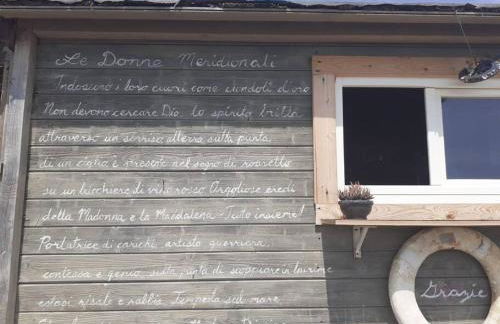 Le Donne Meridionali
Indossano i loro cuori come ciondoli d'oro
Non devono cercare Dio, lo spirito brilla
attraverso un sorriso atterra sulla punta
di un ciglio è presente nel segno di rossetto
su un bicchiere di vino rosso Orgogliose eredi
della Madonna e la Maddalena - Tutto insieme!
Portatrice di carichi, artista guerriera,
contessa e genio
di scoppiare in
risate e rabbia Tempesta sul mare
Grazie